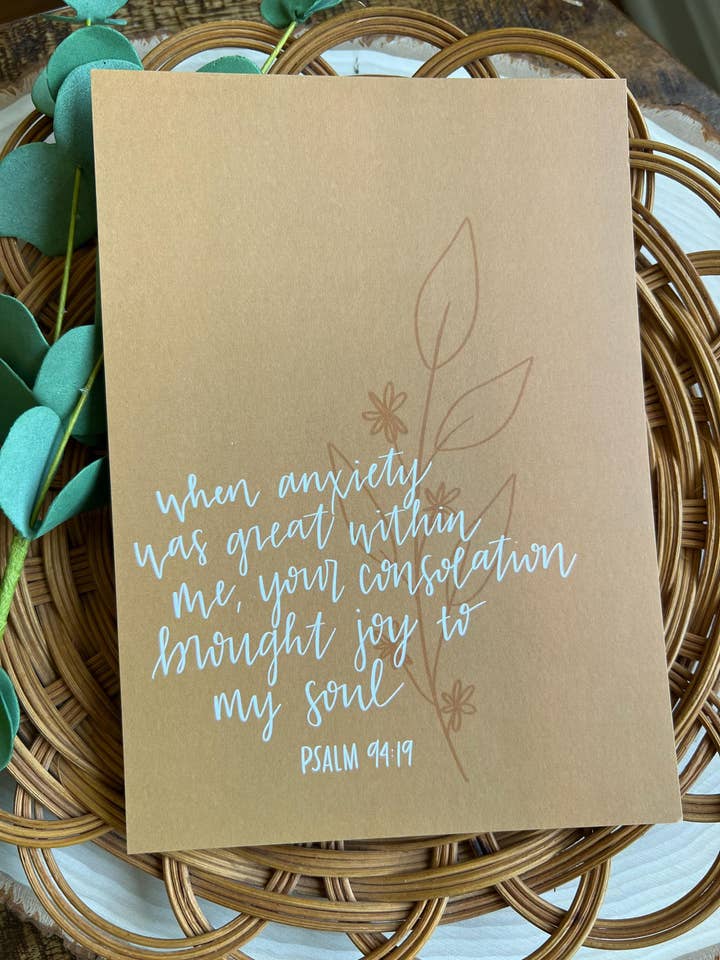 when anxiety
was great within
me, your consolation
brought joy to
my soul
PSALM 94:19